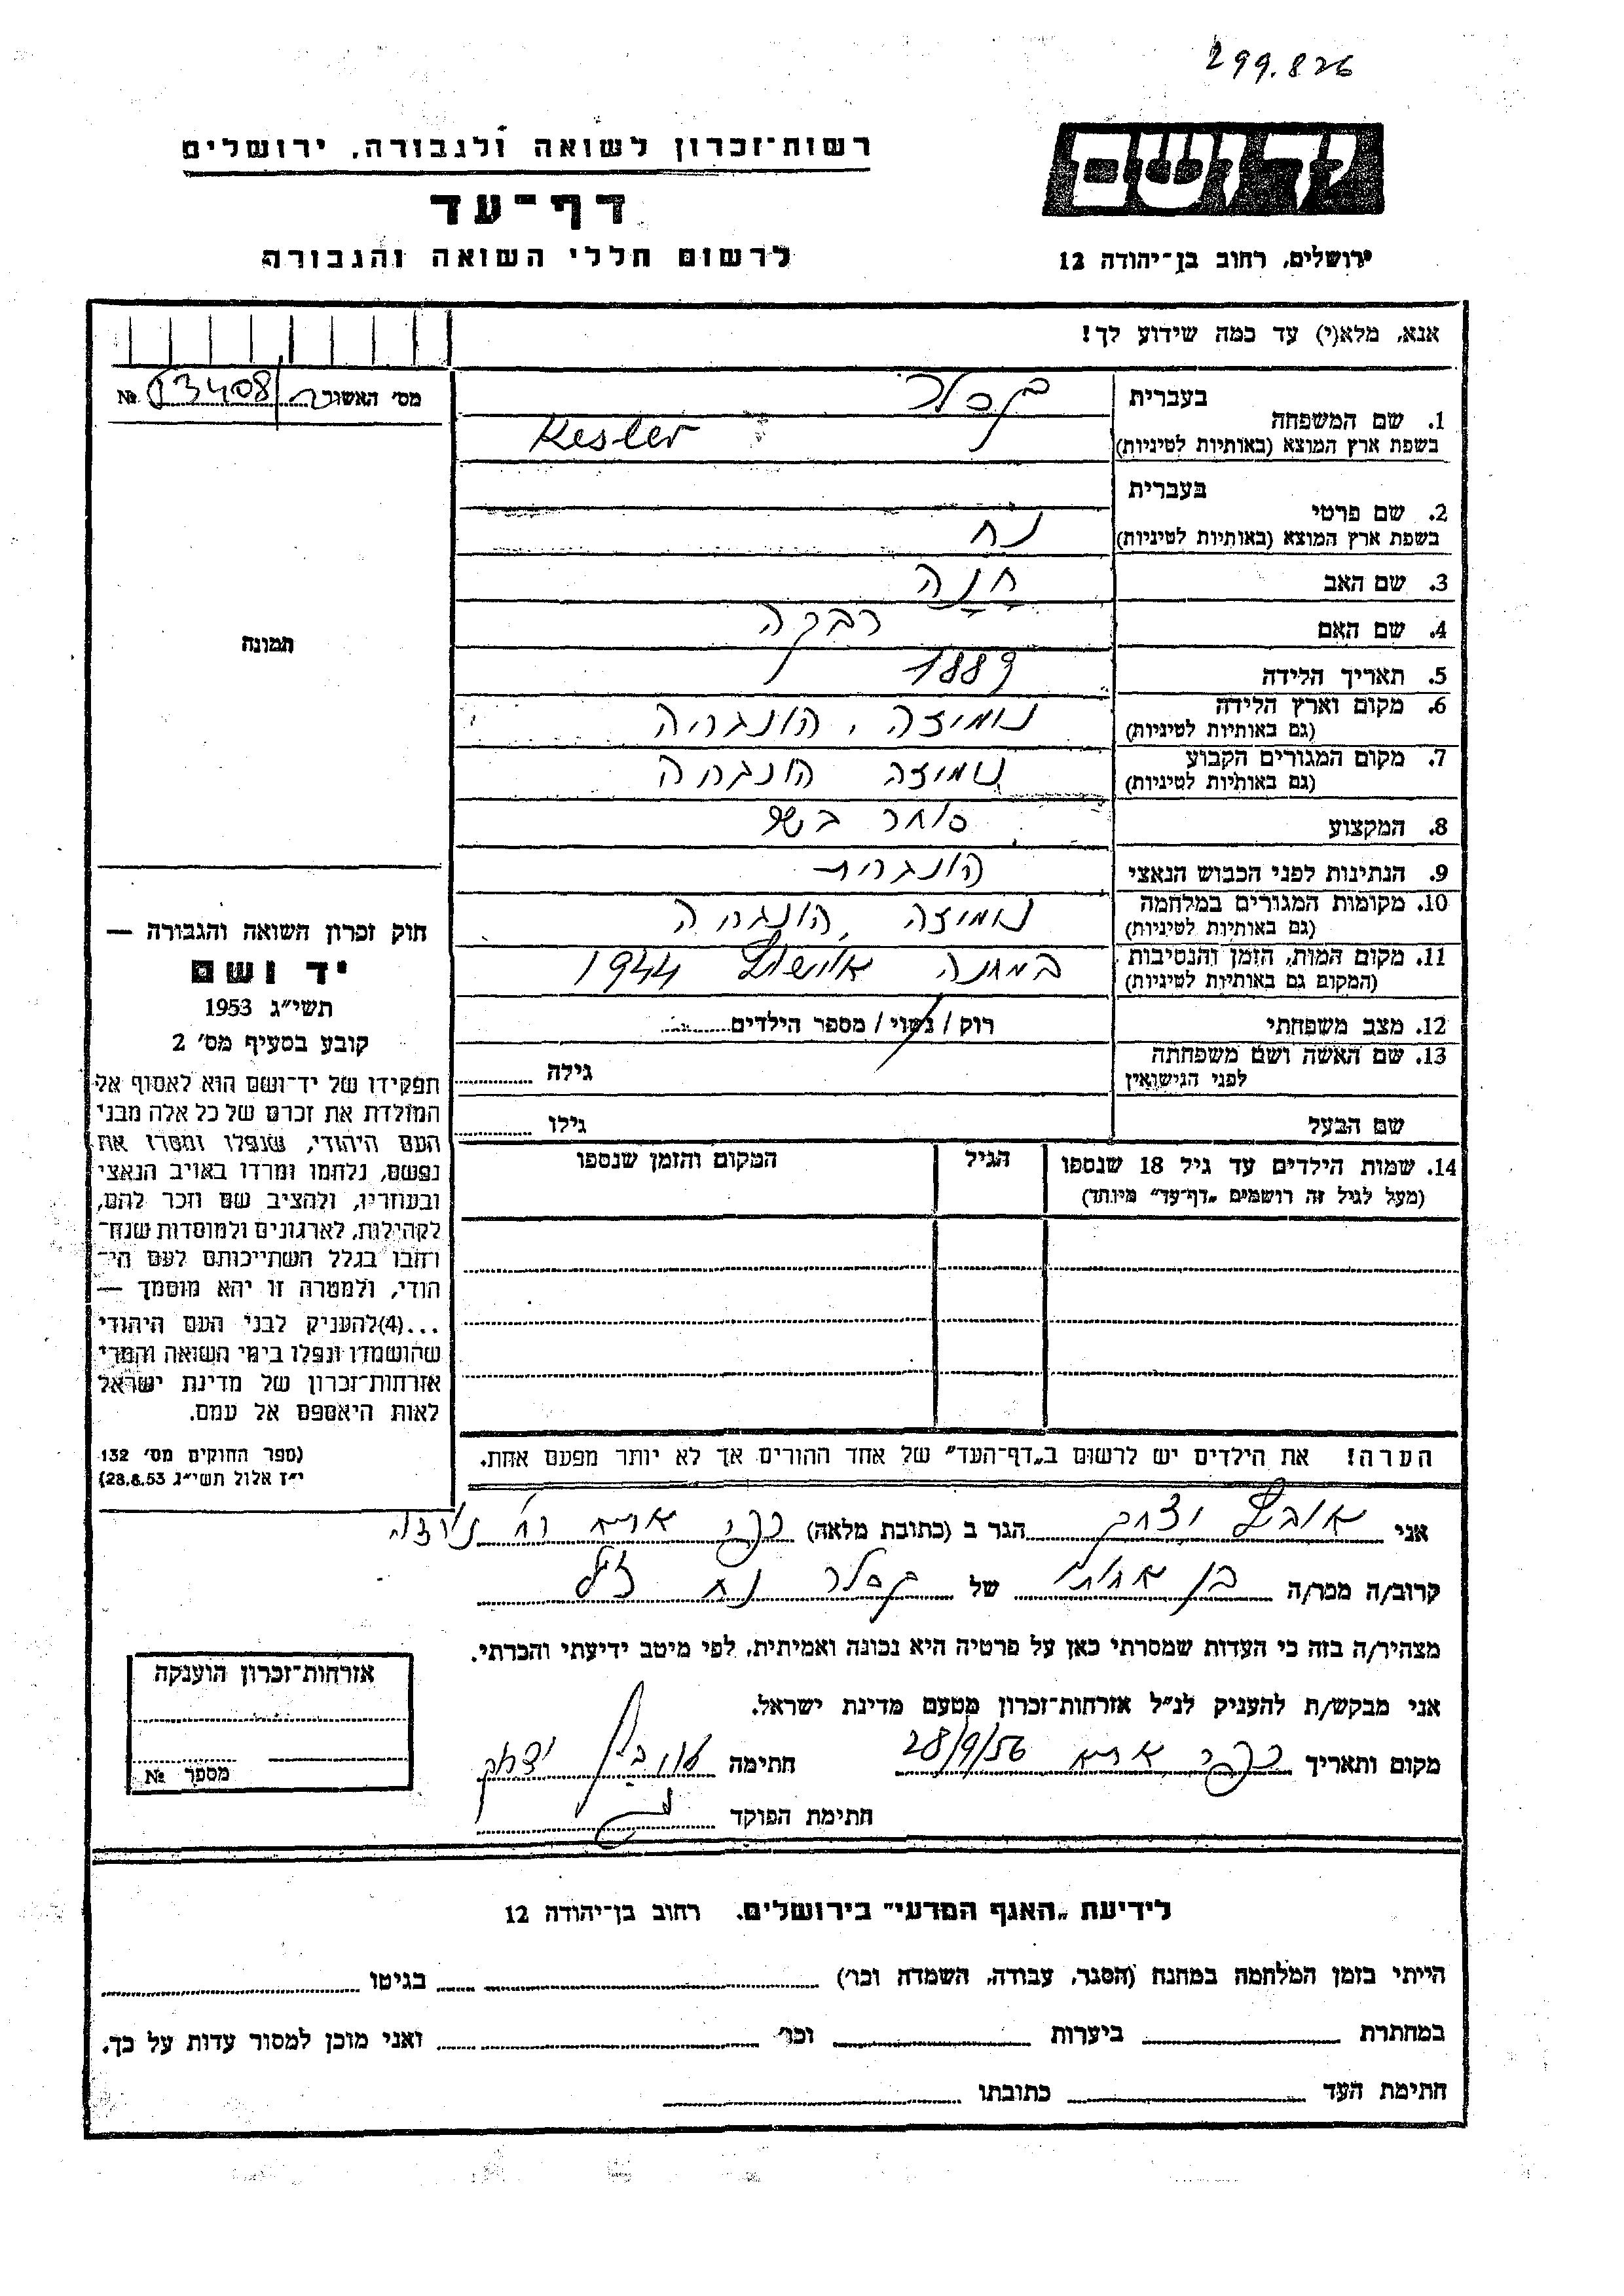 299.826
רשות-זכרון לשואה ולגבורה, ירושלים
דף-עד
לרשום חללי השואה והגבורה
ידושם
ירושלים, רחוב בן-יהודה 12
אנא, מלא(י) עד כמה שידוע לך!
מס׳ האשור 13408 №
1. שם המשפחה בעברית קסלר
בשפת ארץ המוצא (באותיות לטיניות) Kesler
2. שם פרטי בעברית
בשפת ארץ המוצא (באותיות לטיניות) נח
3. שם האב חנה
4. שם האם רבקה
5. תאריך הלידה 1889
6. מקום וארץ הלידה (גם באותיות לטיניות) הונגריה
7. מקום המגורים הקבוע (גם באותיות לטיניות) הונגריה
8. המקצוע סוחר בשר
9. הנתינות לפני הכבוש הנאצי הונגרית
10. מקומות המגורים במלחמה (גם באותיות לטיניות) הונגריה
11. מקום המות, הזמן והנסיבות (המקום גם באותיות לטיניות) במחנה אושוויץ 1944
12. מצב משפחתי רוק/נשוי/מספר הילדים
13. שם האשה ושם משפחתה לפני הנישואין גילה
שם הבעל גילו
14. שמות הילדים עד גיל 18 שנספו הגיל המקום והזמן שנספו
(מעל לגיל זה רושמים „דף-עד״ מיוחד)
תמונה
חוק זכרון השואה והגבורה —
יד ושם
תשי״ג 1953
קובע בסעיף מס׳ 2
תפקידו של יד-ושם הוא לאסוף אל
המולדת את זכרם של כל אלה מבני
העם היהודי, שנפלו ומסרו את
נפשם, נלחמו ומרדו באויב הנאצי
ובעוזריו, ולהציב שם וזכר להם,
לקהילות, לארגונים ולמוסדות שנח-
רחבו בגלל השתייכותם לעם הי-
הודי, ולמטרה זו יהא מוסמך —
...(4)להעניק לבני העם היהודי
שהושמדו ונפלו בימי השואה והמרי
אזרחות-זכרון של מדינת ישראל
לאות היאספם אל עמם.
(ספר החוקים מס׳ 132
י״ז אלול תשי״ג 28.8.53)
הערה! את הילדים יש לרשום ב„דף-העד״ של אחד ההורים אך לא יותר מפעם אחת.
אני יצחק הגר ב (כתובת מלאה) כפר אתא
קרוב/ה מכר/ה בן אחות של קסלר נח ז״ל
מצהיר/ה בזה כי העדות שמסרתי כאן על פרטיה היא נכונה ואמיתית, לפי מיטב ידיעתי והכרתי.
אני מבקש/ת להעניק לנ״ל אזרחות-זכרון מטעם מדינת ישראל.
מקום ותאריך כפר אתא 28/9/56 חתימה יצחק
חתימת הפוקד
אזרחות-זכרון הוענקה
מספר №
לידיעת „האגף המדעי״ בירושלים. רחוב בן-יהודה 12
הייתי בזמן המלחמה במחנה (הסגר, עבודה, השמדה וכו׳) בגיטו
במחתרת ביערות וכו׳ ואני מוכן למסור עדות על כך.
חתימת העד כתובתו